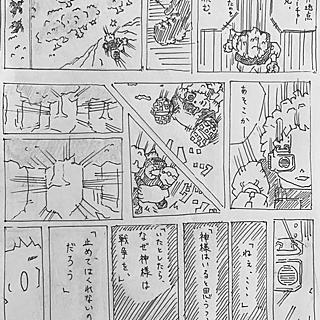 地点
あそこか
「ねぇ、・・・・
神様はいると思う
いたとしたら、
なぜ神様は
戦争を、
止めてはくれないの
だろう。」